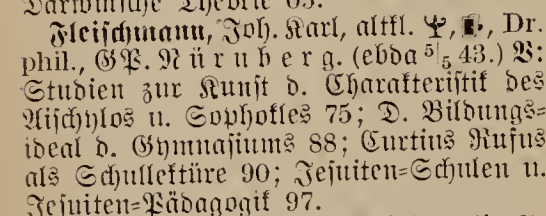 Darwinsche Theorie 65.
Fleischmann, Joh. Karl, altkl. Dr.
phil., GP. Nürnberg. (ebda 5/5 43.) V:
Studien zur Kunst d. Charakteristik des
Aischylos u. Sophokles 75; D. Bildungs=
ideal d. Gymnasiums 88; Curtius Rufus
als Schullektüre 90; Jesuiten=Schulen u.
Jesuiten=Pädagogik 97.